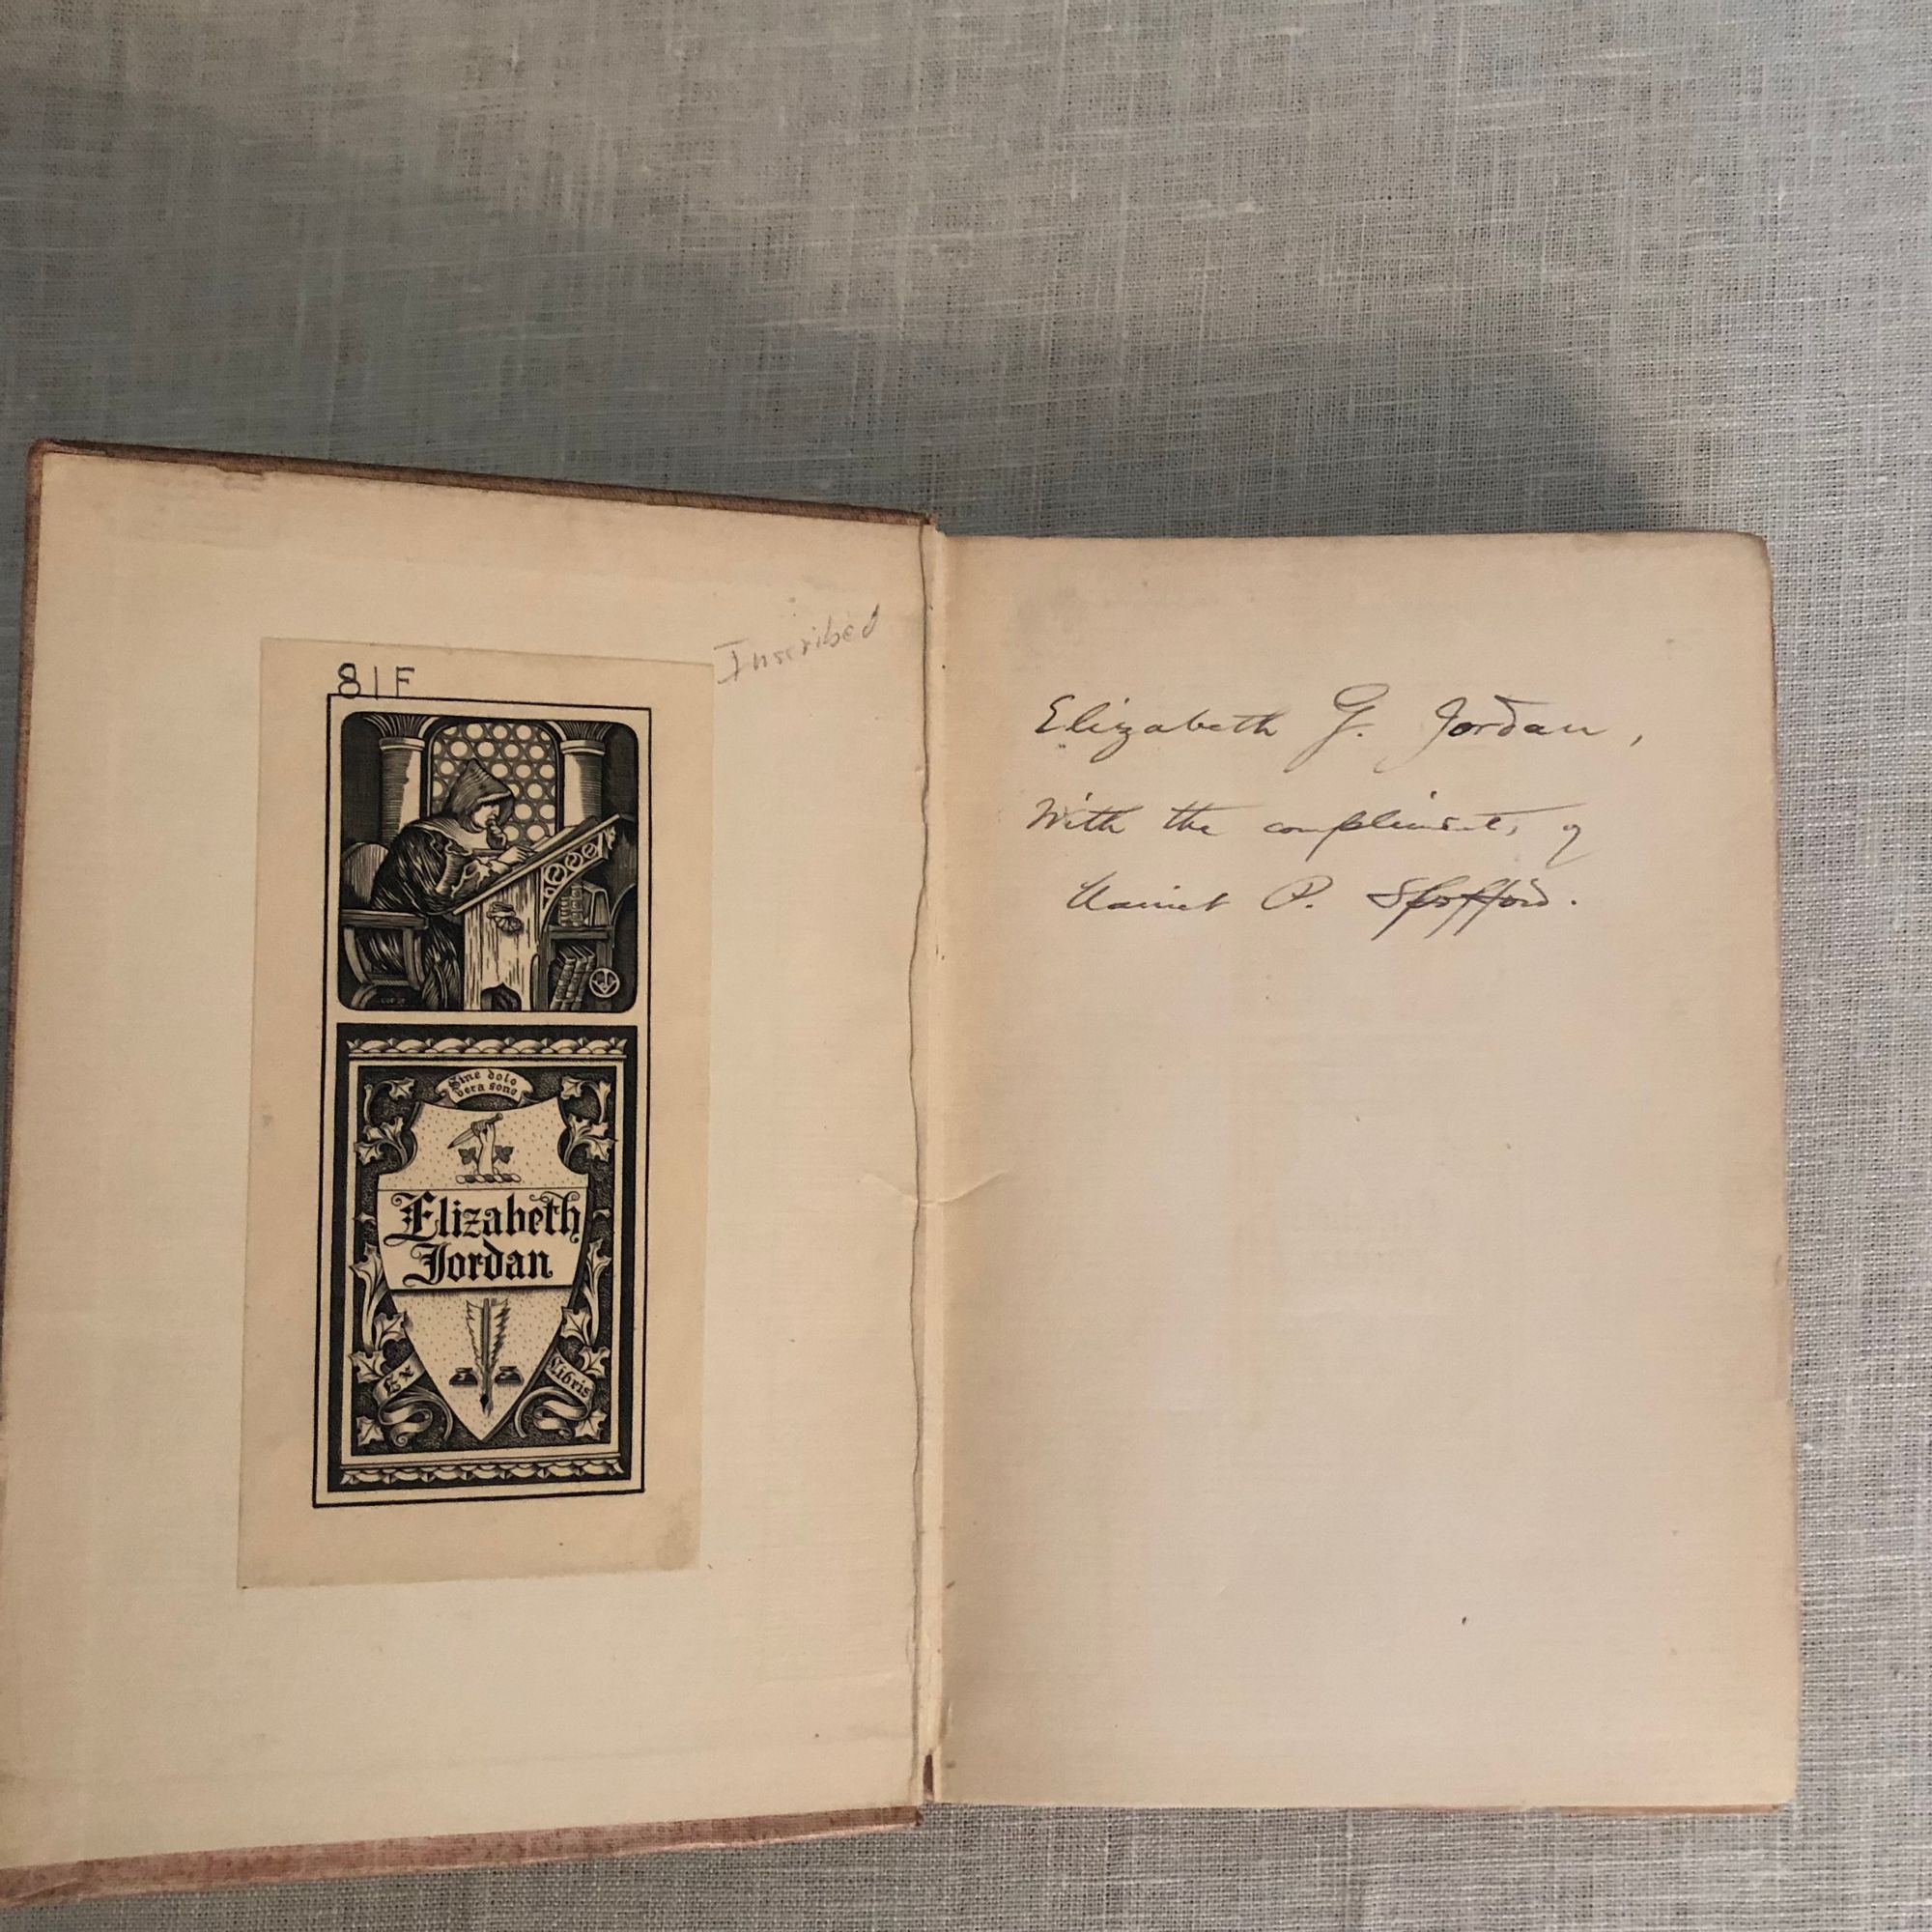 Inscribed
81F
Sine dolo
vera sono
Elizabeth
Jordan
Ex Libris
Elizabeth G. Jordan,
With the compliments of
Harriet P. Spofford.